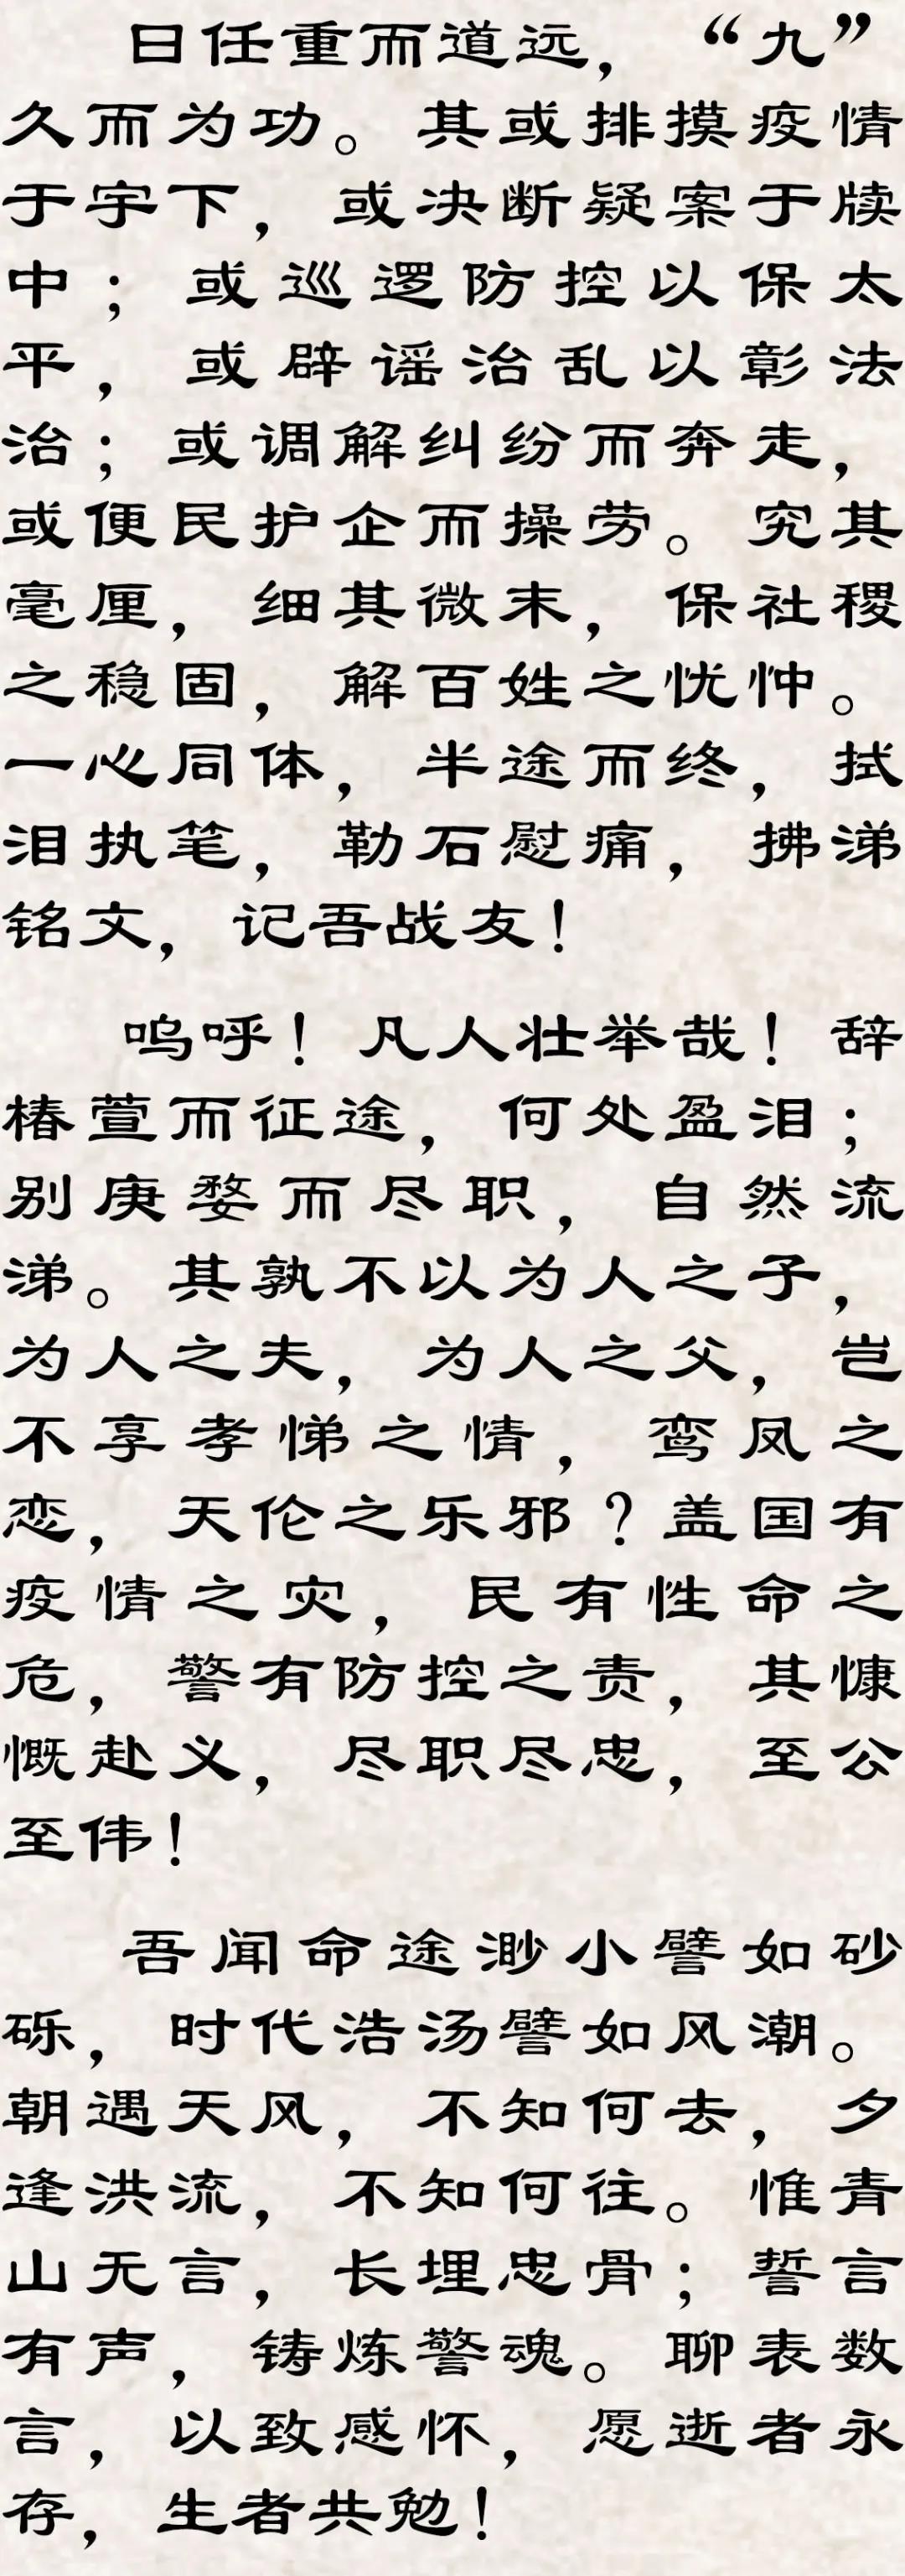 日任重而道远，“九”
久而为功。其或排摸疫情
于宇下，或决断疑案于牍
中；或巡逻防控以保太
平，或辟谣治乱以彰法
治；或调解纠纷而奔走，
或便民护企而操劳。究其
毫厘，细其微末，保社稷
之稳固，解百姓之忧忡。
一心同体，半途而终，拭
泪执笔，勒石慰痛，拂涕
铭文，记吾战友！
呜呼！凡人壮举哉！辞
椿萱而征途，何处盈泪；
别庚婺而尽职，自然流
涕。其孰不以为人之子，
为人之夫，为人之父，岂
不享孝悌之情，鸾凤之
恋，天伦之乐邪？盖国有
疫情之灾，民有性命之
危，警有防控之责，其慷
慨赴义，尽职尽忠，至公
至伟！
吾闻命途渺小譬如砂
砾，时代浩汤譬如风潮。
朝遇天风，不知何去，夕
逢洪流，不知何往。惟青
山无言，长埋忠骨；誓言
有声，铸炼警魂。聊表数
言，以致感怀，愿逝者永
存，生者共勉！